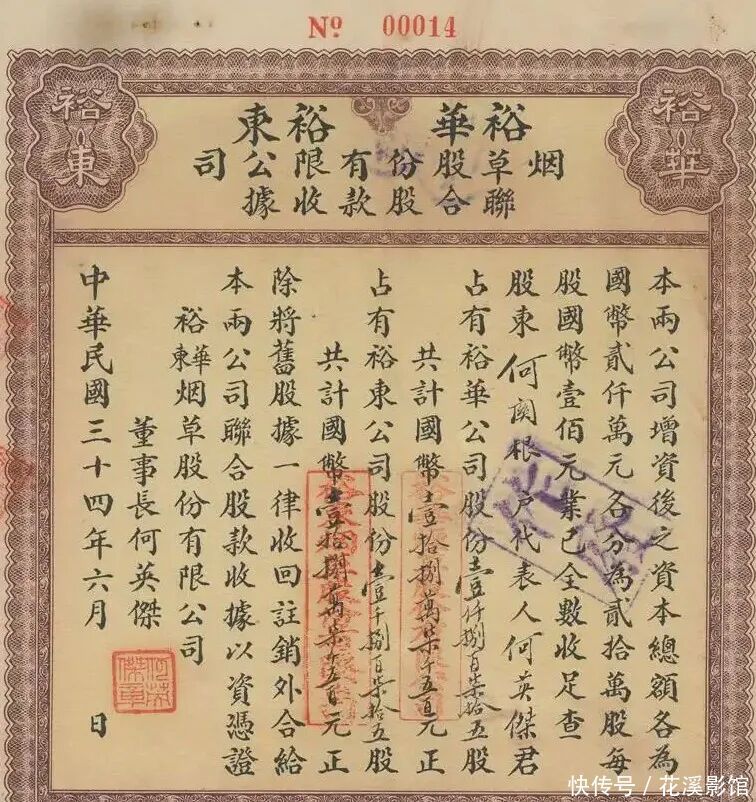 No 00014
裕東
裕華
裕華　裕東
烟草股份有限公司
聯合股款收據
本兩公司增資後之資本總額各為
國幣貳仟萬元各分為貳拾萬股每
股國幣壹佰元業已全數收足查
股東何関根戶代表人何英傑君
占有裕華公司股份壹仟捌百柒拾五股
共計國幣壹拾捌萬柒千五百元正
占有裕東公司股份壹千捌百柒拾五股
共計國幣壹拾捌萬柒千五百元正
除將舊股據一律收回註銷外合給
本兩公司聯合股款收據以資憑證
裕華東烟草股份有限公司
董事長何英傑
中華民國三十四年六月　日
快传号/花溪影馆